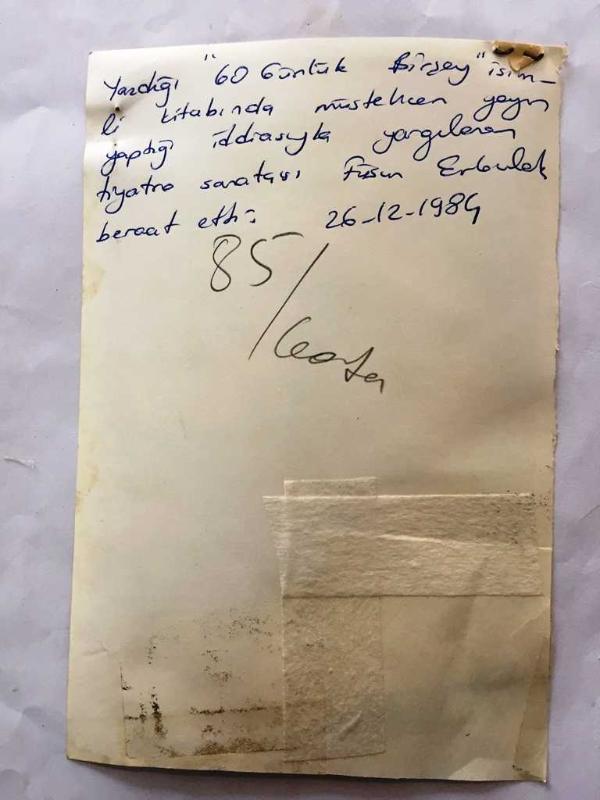 Yazdığı "60 Günlük Birşey" isim-
li kitabında müstehcen yayın
yaptığı iddiasıyla yargılanan
tiyatro sanatçısı Füsun Erbulak
beraat etti. 26-12-1984
85/